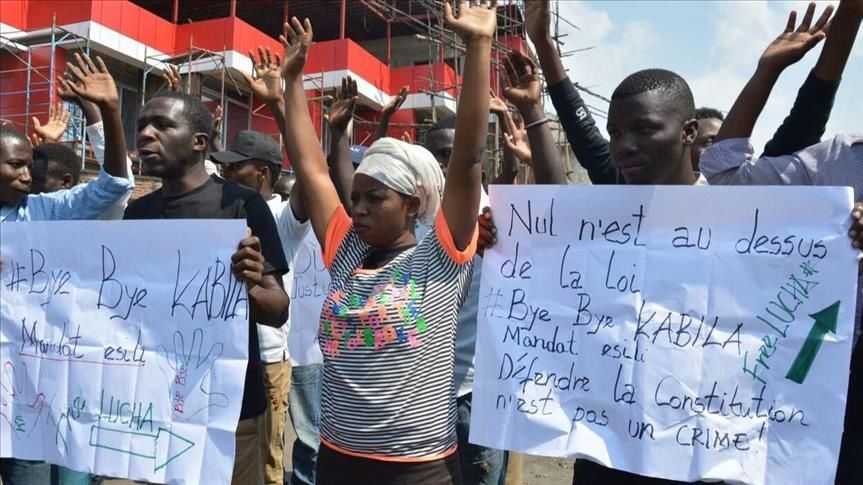 #Bye Bye KABILA
Mandat esili
Bye
Bye
LUCHA
Nul n'est au dessus
de la loi
#Bye Bye KABILA
Mandat esili
Free LUCHA#
Défendre la Constitution
n'est pas un CRIME!